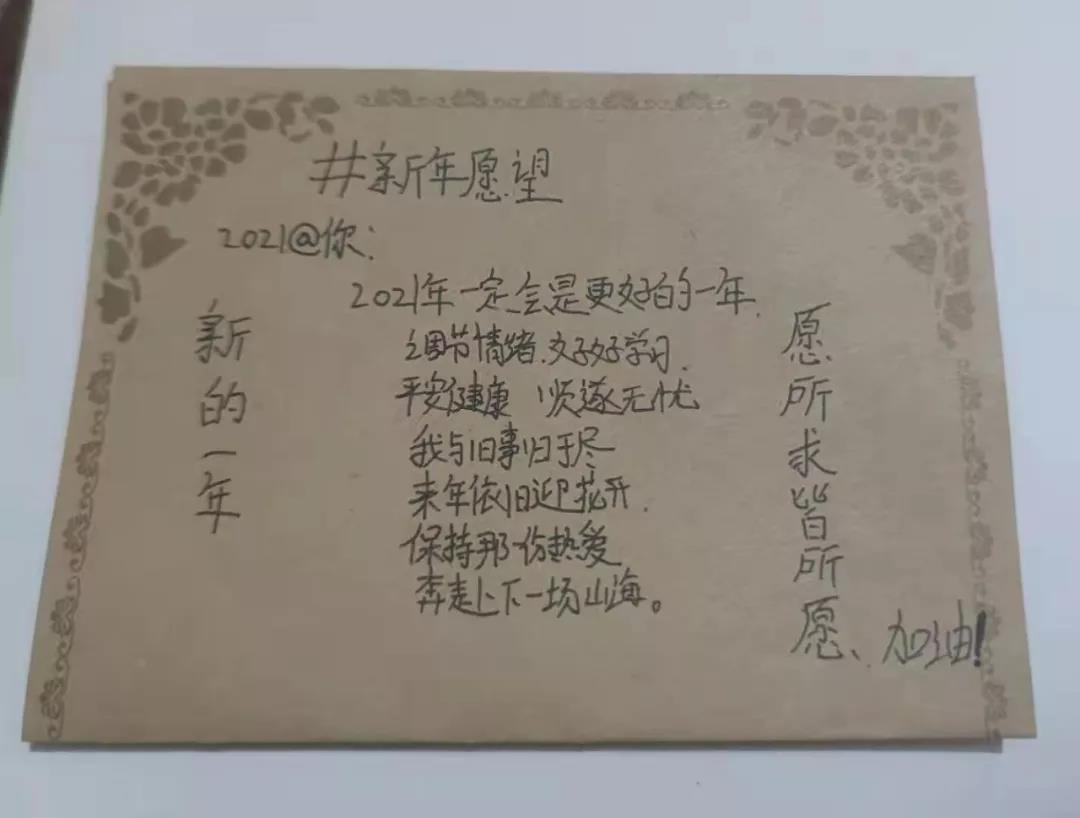 #新年愿望
2021@你:
2021年一定会是更好的一年.
调节情绪.好好学习.
平安健康 顺遂无忧
我与旧事归于尽
来年依旧迎花开.
保持那一份热爱
奔走上下一场山海。
新的一年
愿所求皆所愿、加油!